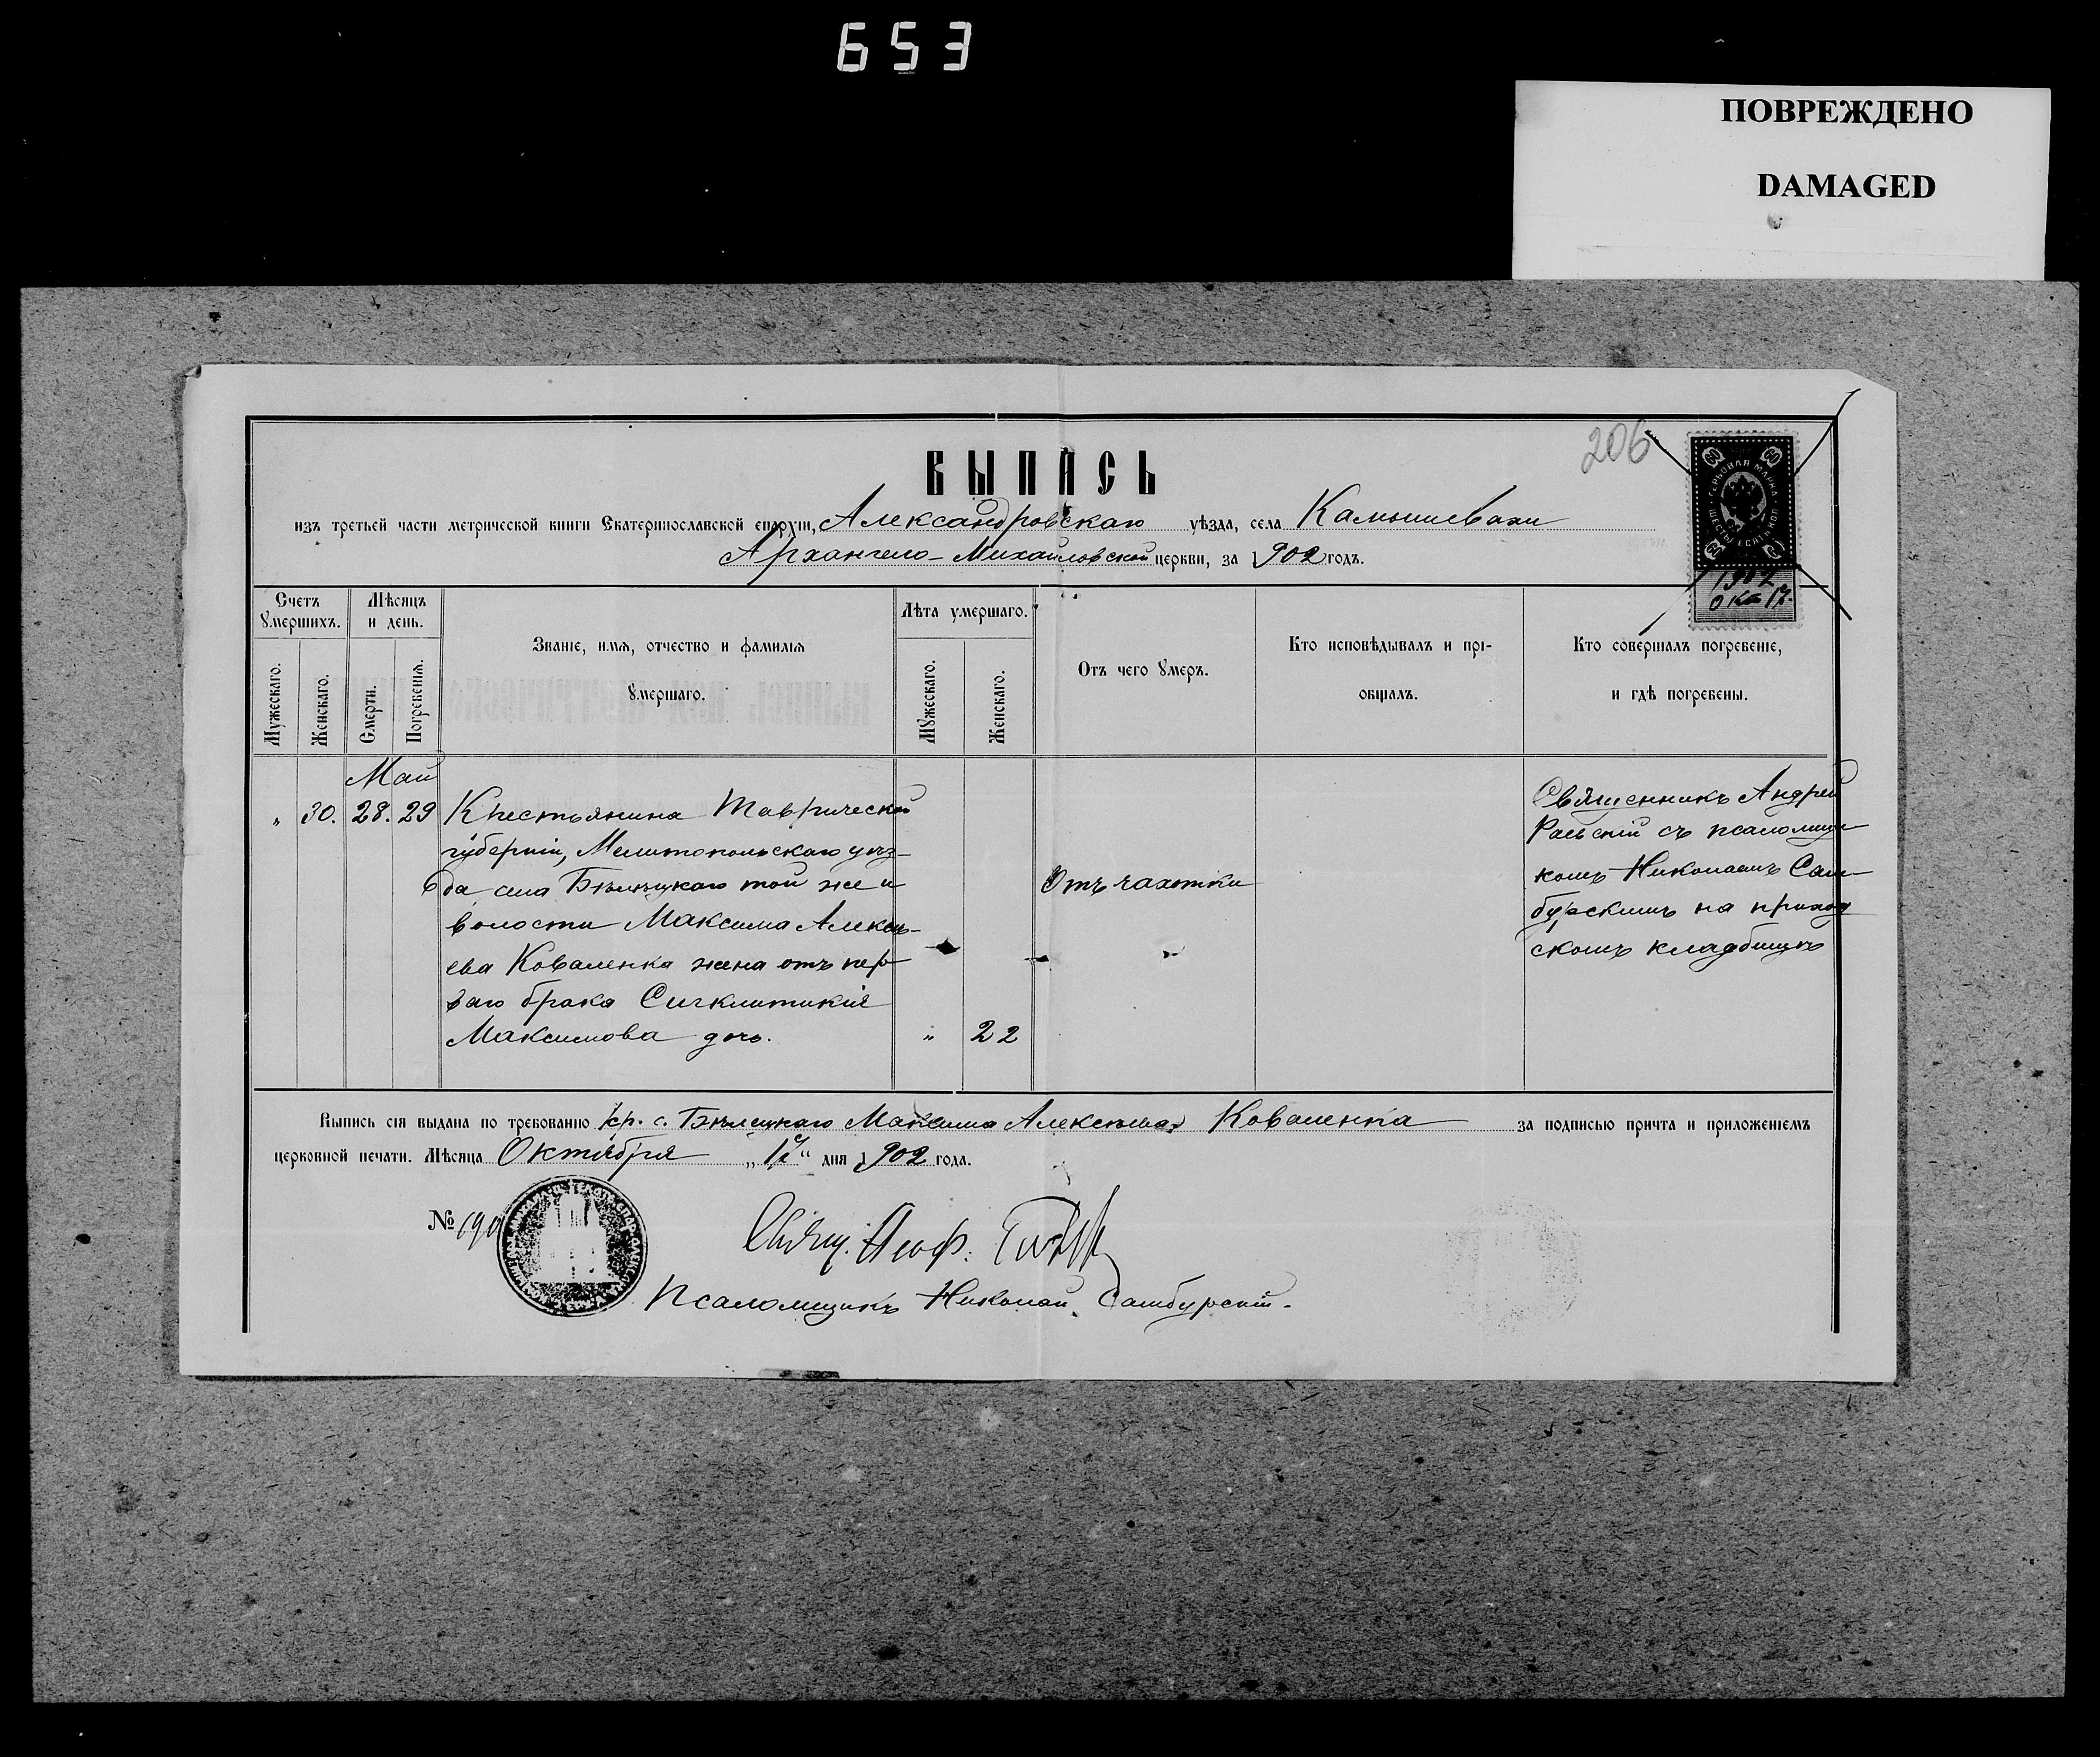 653
ПОВРЕЖДЕНО
DAMAGED
206
ВЫПИСЬ
изъ третьей части метрической книги Екатеринославской епархіи, Александровскаго уѣзда, села Камышевахи
Архангело-Михайловской церкви, за 1902 годъ.
60 60
ГЕРБОВАЯ МАРКА
ШЕСТЬДЕСЯТЪ КОП
1902
Окт 17.
Счетъ умершихъ.
Мѣсяцъ и день.
Званіе, имя, отчество и фамилія
умершаго.
Лѣта умершаго.
Отъ чего умеръ.
Кто исповѣдывалъ и прі-
общалъ.
Кто совершалъ погребеніе,
и гдѣ погребены.
Мужескаго.
Женскаго.
Смерти.
Погребенія.
Мужескаго.
Женскаго.
Май
" 30. 28. 29
Крестьянина Таврической
губерніи, Мелитопольскаго уѣз-
да села Бѣлецкаго той же и
волости Максима Алексѣ-
ева Коваленка жена отъ пер-
ваго брака Сигклитикія
Максимова дочь.
" 22
Отъ чахотки
Священникъ Андрей
Раевскій съ псаломщи-
комъ Николаемъ Сам-
бурскимъ на приход-
скомъ кладбищѣ
Выпись сія выдана по требованію кр. с. Бѣлецкаго Максима Алексѣева Коваленка за подписью причта и приложеніемъ
церковной печати. Мѣсяца Октября „17“ дня 1902 года.
№
Свящ.
Псаломщикъ Николай Самбурскій.